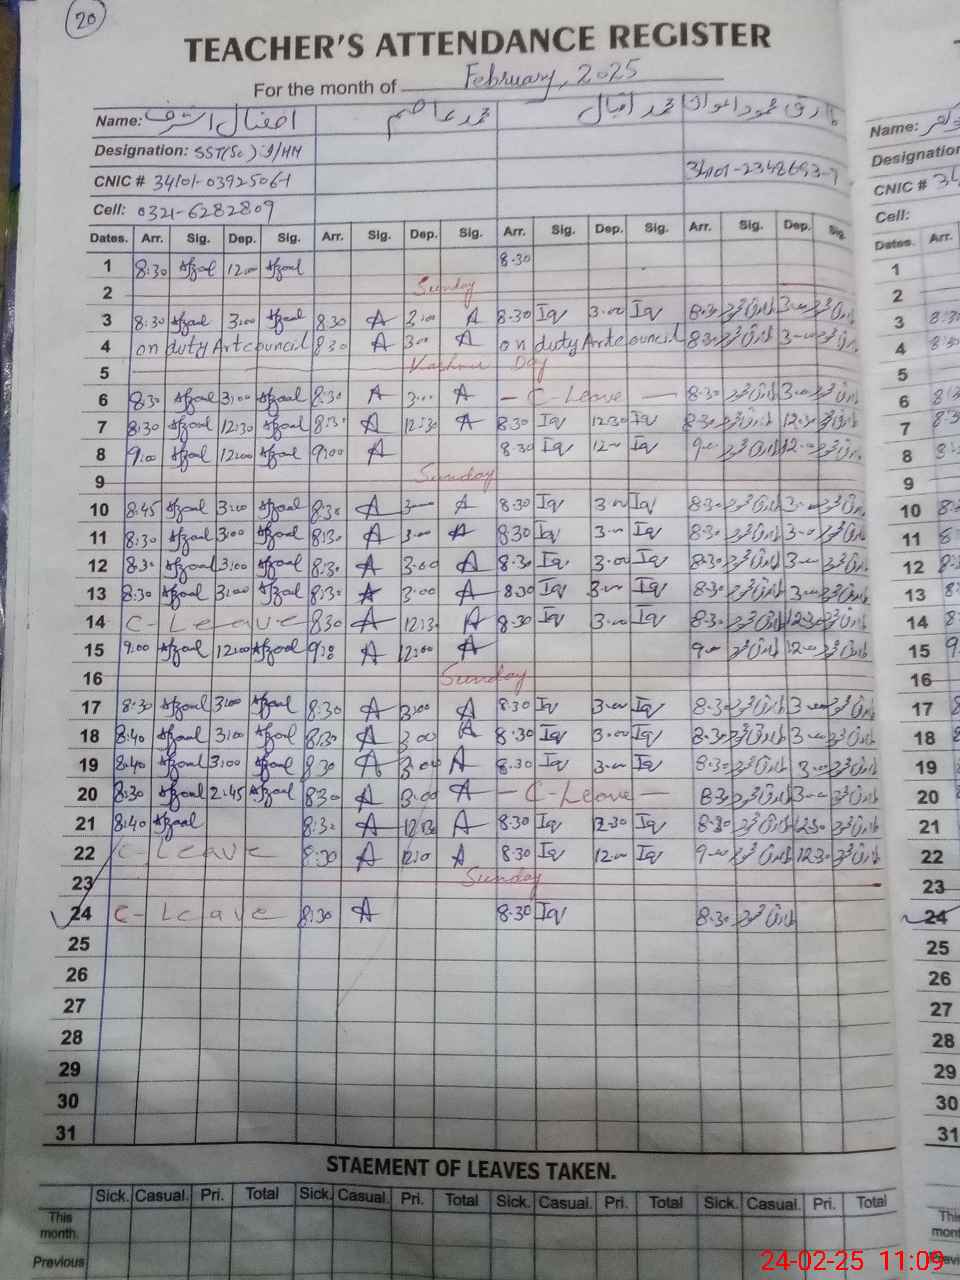 20
TEACHER'S ATTENDANCE REGISTER
For the month of February, 2025
Name: افضال اشرف محمد عاصم محمد اقبال طارق محمود اعوان
Designation: SST(Sc) I/HM
CNIC # 34101-0392506-1
Cell: 0321-6282809
Dates. Arr. Sig. Dep. Sig. Arr. Sig. Dep. Sig. Arr. Sig. Dep. Sig. Arr. Sig. Dep. Sig.
1 8:30 Afzaal 12:00 Afzaal 8.30
2 Sunday
3 8:30 Afzaal 3:00 Afzaal 8:30 A 3:00 A 8.30 Iq 3.00 Iq 8.30 طارق محمود 3.00 طارق محمود
4 on duty Art council 8:30 A 3:00 A on duty Art council 8.30 طارق محمود 3.00 طارق محمود
5 Kashmir Day
6 8:30 Afzaal 3:00 Afzaal 8:30 A 3:00 A - C-Leave - 8.30 طارق محمود 3.00 طارق محمود
7 8:30 Afzaal 12:30 Afzaal 8:30 A 12:30 A 8.30 Iq 12.30 Iq 8.30 طارق محمود 12.30 طارق محمود
8 9:00 Afzaal 12:00 Afzaal 9:00 A 8.30 Iq 12.00 Iq 9.00 طارق محمود 12.00 طارق محمود
9 Sunday
10 8:45 Afzaal 3:00 Afzaal 8:30 A 3:00 A 8.30 Iq 3.00 Iq 8.30 طارق محمود 3.00 طارق محمود
11 8:30 Afzaal 3:00 Afzaal 8:30 A 3:00 A 8.30 Iq 3.00 Iq 8.30 طارق محمود 3.00 طارق محمود
12 8:30 Afzaal 3:00 Afzaal 8:30 A 3:00 A 8.30 Iq 3.00 Iq 8.30 طارق محمود 3.00 طارق محمود
13 8:30 Afzaal 3:00 Afzaal 8:30 A 3:00 A 8.30 Iq 3.00 Iq 8.30 طارق محمود 3.00 طارق محمود
14 C-Leave 8:30 A 12:30 A 8.30 Iq 3.00 Iq 8.30 طارق محمود 12.30 طارق محمود
15 9:00 Afzaal 12:00 Afzaal A 12:00 A 9.00 طارق محمود 12.00 طارق محمود
16 Sunday
17 8:30 Afzaal 3:00 Afzaal 8:30 A 3:00 A 8.30 Iq 3.00 Iq 8.30 طارق محمود 3.00 طارق محمود
18 8:40 Afzaal 3:00 Afzaal 8:30 A 3:00 A 8.30 Iq 3.00 Iq 8.30 طارق محمود 3.00 طارق محمود
19 8:40 Afzaal 3:00 Afzaal 8:30 A 3:00 A 8.30 Iq 3.00 Iq 8.30 طارق محمود 3.00 طارق محمود
20 8:30 Afzaal 2:45 Afzaal 8:30 A 3:00 A - C-Leave - 8.30 طارق محمود 3.00 طارق محمود
21 8:40 Afzaal 8:30 A 12:30 A 8.30 Iq 12.30 Iq 8.30 طارق محمود 12.30 طارق محمود
22 C-Leave 8:30 A A 8.30 Iq 12.00 Iq 9.00 طارق محمود 12.30 طارق محمود
23 Sunday
24 C-Leave 8:30 A 8.30 Iq 8.30 طارق محمود
25
26
27
28
29
30
31
STAEMENT OF LEAVES TAKEN.
Sick. Casual. Pri. Total Sick. Casual. Pri. Total Sick. Casual. Pri. Total Sick. Casual. Pri. Total
This month.
Previous
24-02-25 11:09
Name:
Designation
CNIC #
Cell:
Dates. Arr.
1
2
3
4
5
6
7
8
9
10
11
12
13
14
15
16
17
18
19
20
21
22
23
24
25
26
27
28
29
30
31